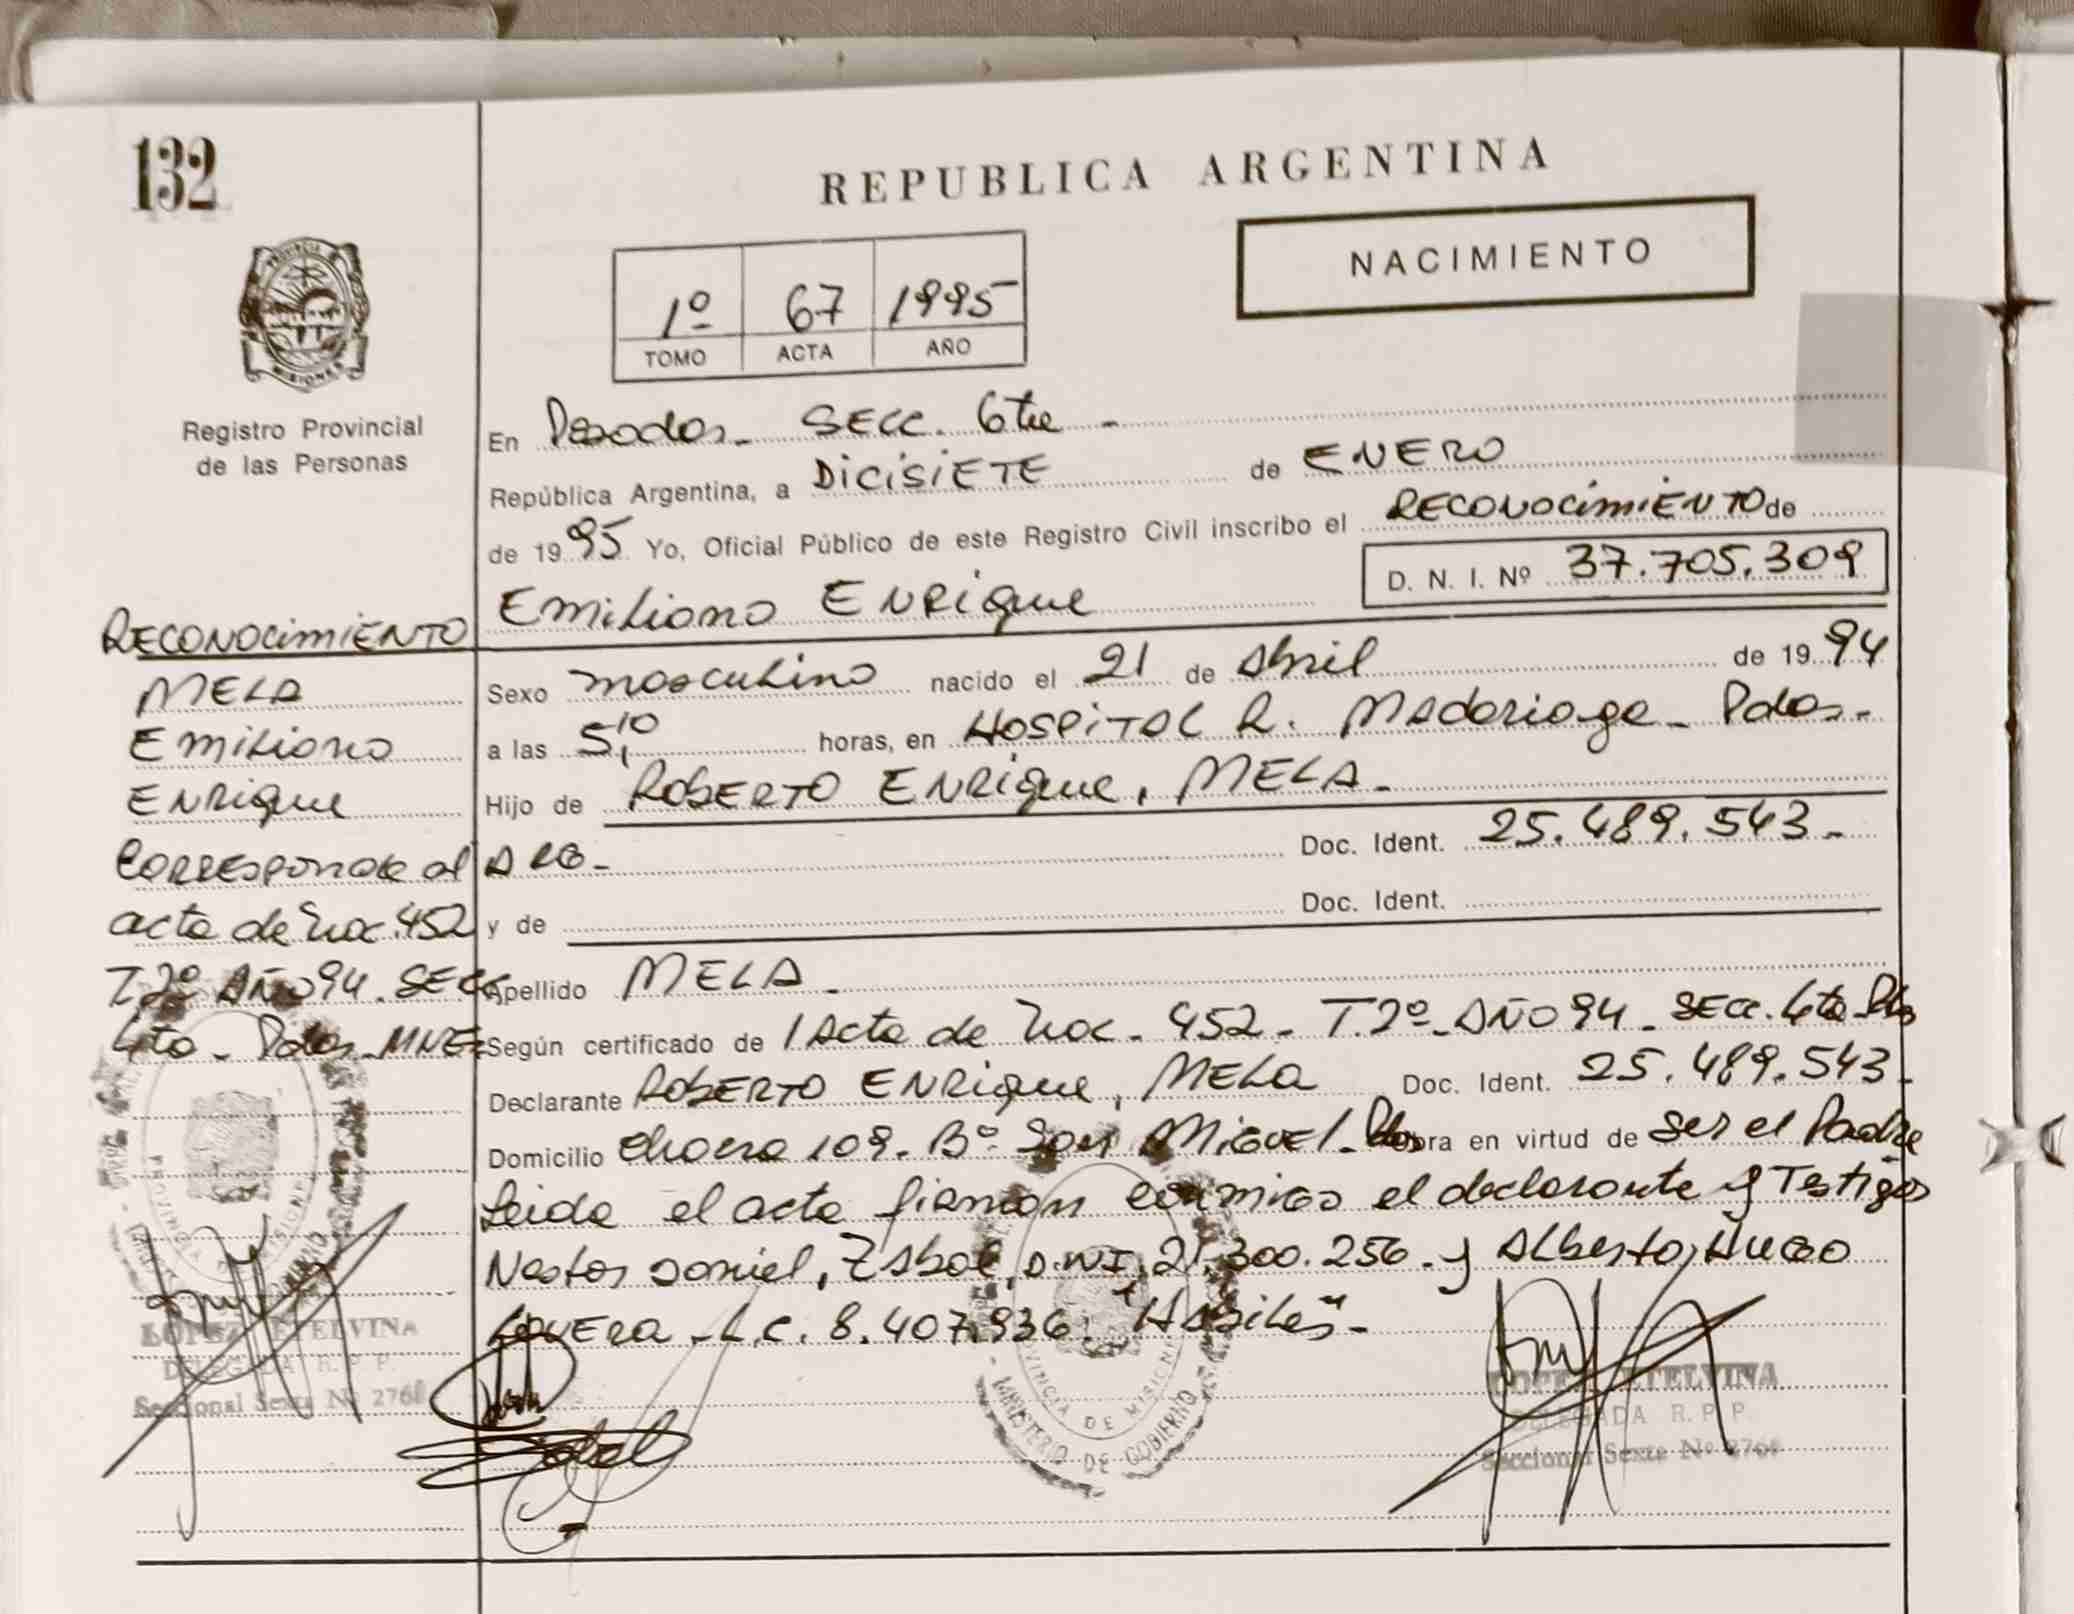 132
REPUBLICA ARGENTINA
NACIMIENTO
1º 67 1995
TOMO ACTA AÑO
PROVINCIA
MISIONES
Registro Provincial
de las Personas
En Posadas - SECC. 6ta -
República Argentina, a DICISIETE de ENERO
de 1995 Yo, Oficial Público de este Registro Civil inscribo el RECONOCIMIENTO de
D. N. I. Nº 37.705.309
Emiliano ENRIQUE
RECONOCIMIENTO
MELA
Emiliano
ENRIQUE
CORRESPONDE al
acta de Nac. 452
T.2º AÑO 94. SECC
4ta - Pdas - MNES
Sexo masculino nacido el 21 de Abril de 1994
a las 5,10 horas, en HOSPITAL R. Madariaga - Pdas -
Hijo de ROBERTO ENRIQUE, MELA -
ARG - Doc. Ident. 25.489.543 -
y de Doc. Ident.
Apellido MELA -
Según certificado de / Acta de Nac - 452 - T.2º - AÑO 94 - SECC. 4ta Pdas
Declarante ROBERTO ENRIQUE, MELA Doc. Ident. 25.489.543 -
Domicilio chacra 109. Bº San MIGUEL - Pdas obra en virtud de ser el Padre
Leida el acta firman conmigo el declarante y Testigos
Nestor Daniel, ZAbal, D.NI, 21.300.256 - y Alberto, HUGO
LOVERA - L.C. 8.407.936. "HABILES" -
LOPEZ ETELVINA
DELEGADA R. P. P.
Seccional Sexta Nº 2768
PROVINCIA DE MISIONES
MINISTERIO DE GOBIERNO
LOPEZ ETELVINA
DELEGADA R. P. P.
Seccional Sexta Nº 2768